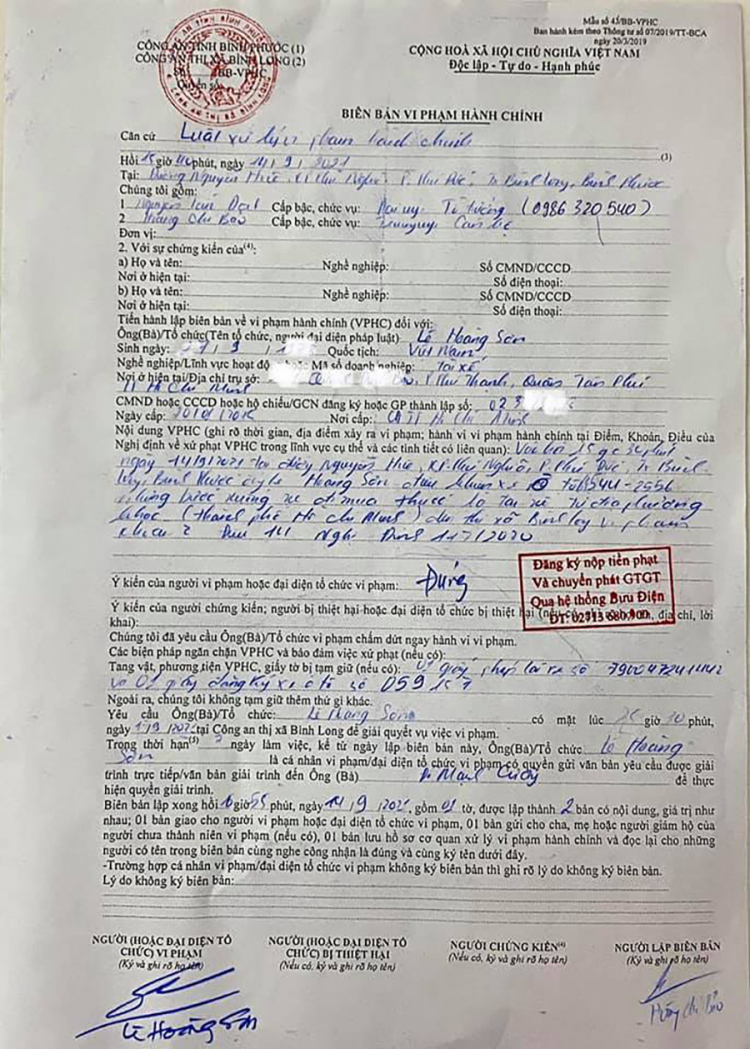 Mẫu số 43/BB-VPHC
Ban hành kèm theo Thông tư số 07/2019/TT-BCA
ngày 20/3/2019
CÔNG AN TỈNH BÌNH PHƯỚC (1)
CÔNG AN THỊ XÃ BÌNH LONG (2)
/BB-VPHC
Quyển số
CỘNG HOÀ XÃ HỘI CHỦ NGHĨA VIỆT NAM
Độc lập - Tự do - Hạnh phúc
BIÊN BẢN VI PHẠM HÀNH CHÍNH
Căn cứ Luật xử lý vi phạm hành chính (3)
Hồi 15 giờ 40 phút, ngày 14/9/2021
Tại: Đường Nguyễn Huệ, KP Phú Nghĩa, P. Phú Đức, Tx Bình Long, Bình Phước
Chúng tôi gồm:
1 Nguyễn Tam Đạt Cấp bậc, chức vụ: Đại uý. Tổ trưởng (0986 320 540)
2 Hoàng Chí Bảo Cấp bậc, chức vụ: Trung uý Cán bộ
Đơn vị:
2. Với sự chứng kiến của(4):
a) Họ và tên: Nghề nghiệp: Số CMND/CCCD
Nơi ở hiện tại: Số điện thoại:
b) Họ và tên: Nghề nghiệp: Số CMND/CCCD
Nơi ở hiện tại: Số điện thoại:
Tiến hành lập biên bản về vi phạm hành chính (VPHC) đối với:
Ông(Bà)/Tổ chức(Tên tổ chức, người đại diện pháp luật) Lê Hoàng Sơn
Sinh ngày: /9/1 Quốc tịch: Việt Nam
Nghề nghiệp/Lĩnh vực hoạt độ Mã số doanh nghiệp: Tài xế
Nơi ở hiện tại/Địa chỉ trụ sở: Phú Thạnh, Quận Tân Phú
TP Hồ Chí Minh
CMND hoặc CCCD hoặc hộ chiếu/GCN đăng ký hoặc GP thành lập số: 023
Ngày cấp: Nơi cấp: CA TP Hồ Chí Minh
Nội dung VPHC (ghi rõ thời gian, địa điểm xảy ra vi phạm; hành vi vi phạm hành chính tại Điểm, Khoản, Điều của
Nghị định về xử phạt VPHC trong lĩnh vực cụ thể và các tình tiết có liên quan): Vào hồi 15 giờ 34 phút
ngày 14/9/2021 tại đường Nguyễn Huệ, KP Phú Nghĩa, P. Phú Đức, Tx Bình
Long, Bình Phước Hoàng Sơn điều khiển xe ô tô
nhưng bước xuống xe đi mua thuốc là tài xế từ địa phương
khác (thành phố Hồ Chí Minh) đến thị xã Bình Long vi phạm
khoản 2 Điều 14 Nghị Định 117/2020
Ý kiến của người vi phạm hoặc đại diện tổ chức vi phạm: Đúng
Đăng ký nộp tiền phạt
Và chuyển phát GTGT
Qua hệ thống Bưu Điện
ĐT: 02713 680.900
Ý kiến của người chứng kiến; người bị thiệt hại hoặc đại diện tổ chức bị thiệt hại (nếu có, địa chỉ, lời
khai):
Chúng tôi đã yêu cầu Ông(Bà)/Tổ chức vi phạm chấm dứt ngay hành vi vi phạm.
Các biện pháp ngăn chặn VPHC và bảo đảm việc xử phạt (nếu có):
Tang vật, phương tiện VPHC, giấy tờ bị tạm giữ (nếu có): 01 giấy phép lái xe số 790047241442
và 01 giấy đăng ký xe ô tô số
Ngoài ra, chúng tôi không tạm giữ thêm thứ gì khác.
Yêu cầu Ông(Bà)/Tổ chức: Lê Hoàng Sơn có mặt lúc giờ 30 phút,
ngày /9/2021 tại Công an thị xã Bình Long để giải quyết vụ việc vi phạm.
Trong thời hạn(5) ngày làm việc, kể từ ngày lập biên bản này, Ông(Bà)/Tổ chức Lê Hoàng
Sơn là cá nhân vi phạm/đại diện tổ chức vi phạm có quyền gửi văn bản yêu cầu được giải
trình trực tiếp/văn bản giải trình đến Ông (Bà) Mạnh Cường để thực
hiện quyền giải trình.
Biên bản lập xong hồi 16 giờ 55 phút, ngày 14/9/2021, gồm 01 tờ, được lập thành 2 bản có nội dung, giá trị như
nhau; 01 bản giao cho người vi phạm hoặc đại diện tổ chức vi phạm, 01 bản gửi cho cha, mẹ hoặc người giám hộ của
người chưa thành niên vi phạm (nếu có), 01 bản lưu hồ sơ cơ quan xử lý vi phạm hành chính và đọc lại cho những
người có tên trong biên bản cùng nghe công nhận là đúng và cùng ký tên dưới đây.
-Trường hợp cá nhân vi phạm/đại diện tổ chức vi phạm không ký biên bản thì ghi rõ lý do không ký biên bản.
Lý do không ký biên bản:
NGƯỜI (HOẶC ĐẠI DIỆN TỔ
CHỨC) VI PHẠM
(Ký và ghi rõ họ tên)
Lê Hoàng Sơn
NGƯỜI (HOẶC ĐẠI DIỆN TỔ
CHỨC) BỊ THIỆT HẠI
(Nếu có, ký và ghi rõ họ tên)
NGƯỜI CHỨNG KIẾN(4)
(Nếu có, ký và ghi rõ họ tên)
NGƯỜI LẬP BIÊN BẢN
(Ký và ghi rõ họ tên)
Hoàng Chí Bảo